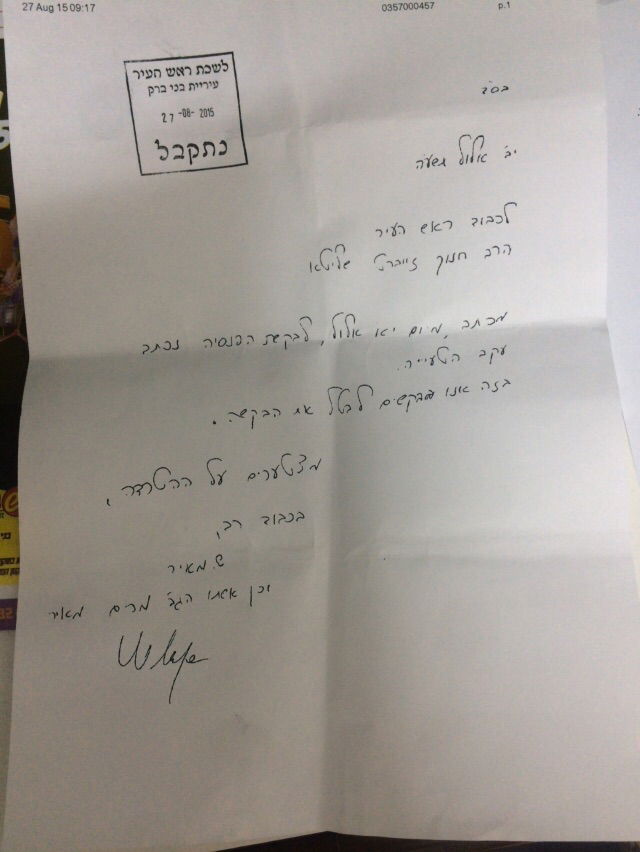 27 Aug 15 09:17 0357000457 p.1
לשכת ראש העיר
עיריית בני ברק
27 -08- 2015
נתקבל
בס"ד
יב' אלול תשע"ה
לכבוד ראש העיר
הרב חנוך זייברט שליט"א
מכתב, מיום יא' אלול, לבקשת הפנסיה נכתב
עקב הטעייה.
בזה אנו מבקשים לבטל את הבקשה.
מצטערים על ההטרדה,
בכבוד רב,
ש. מאיר
וכן אשתו הגב' מרים מאיר